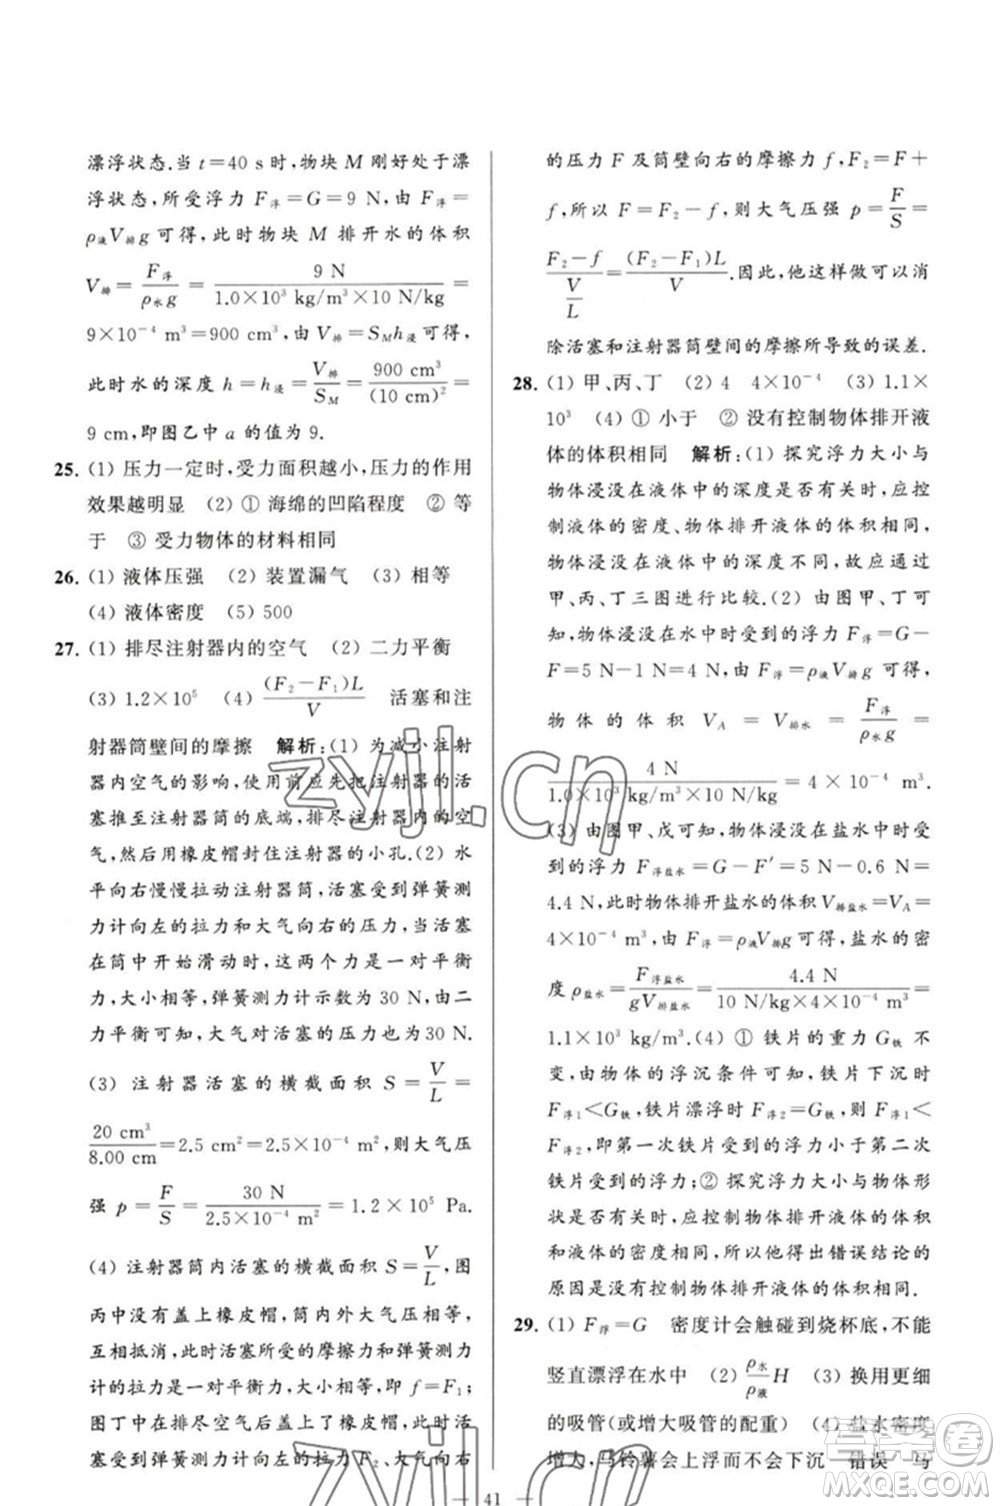 漂浮状态.当 t=40 s时,物块 M 刚好处于漂
浮状态,所受浮力 F浮=G=9 N,由 F浮=
ρ液V排g 可得,此时物块 M 排开水的体积
V排=F浮/ρ水g=9 N/1.0×10³ kg/m³×10 N/kg=
9×10⁻⁴ m³=900 cm³,由 V排=S_M h浸 可得,
此时水的深度 h=h浸=V排/S_M=900 cm³/(10 cm)²=
9 cm,即图乙中 a 的值为 9.
25. (1) 压力一定时,受力面积越小,压力的作用
效果越明显 (2) ① 海绵的凹陷程度 ② 等
于 ③ 受力物体的材料相同
26. (1) 液体压强 (2) 装置漏气 (3) 相等
(4) 液体密度 (5) 500
27. (1) 排尽注射器内的空气 (2) 二力平衡
(3) 1.2×10⁵ (4) (F₂-F₁)L/V 活塞和注
射器筒壁间的摩擦 解析:(1) 为减小注射
器内空气的影响,使用前应先把注射器的活
塞推至注射器筒的底端,排尽注射器内的空
气,然后用橡皮帽封住注射器的小孔.(2) 水
平向右慢慢拉动注射器筒,活塞受到弹簧测
力计向左的拉力和大气向右的压力,当活塞
在筒中开始滑动时,这两个力是一对平衡
力,大小相等,弹簧测力计示数为 30 N,由二
力平衡可知,大气对活塞的压力也为30 N.
(3) 注射器活塞的横截面积 S=V/L=
20 cm³/8.00 cm=2.5 cm²=2.5×10⁻⁴ m²,则大气压
强 p=F/S=30 N/2.5×10⁻⁴ m²=1.2×10⁵ Pa.
(4) 注射器筒内活塞的横截面积 S=V/L,图
丙中没有盖上橡皮帽,筒内外大气压相等,
相互抵消,活塞所受的摩擦力和弹簧测力
计的拉力是一对平衡力,大小相等,即 f=F₁;
图丁中在排尽空气后盖上了橡皮帽,此时活
塞受到弹簧测力计向左的拉力 F₂、大气向右
的压力 F 及筒壁向右的摩擦力 f,F₂=F+
f,所以 F=F₂-f,则大气压强 p=F/S=
(F₂-f)/(V/L)=(F₂-F₁)L/V.因此,他这样做可以消
除活塞和注射器筒壁间的摩擦所导致的误差.
28. (1) 甲、丙、丁 (2) 4 4×10⁻⁴ (3) 1.1×
10³ (4) ① 小于 ② 没有控制物体排开液
体的体积相同 解析:(1) 探究浮力大小与
物体浸没在液体中的深度是否有关时,应控
制液体的密度、物体排开液体的体积相同,
物体浸没在液体中的深度不同,故应通过
甲、丙、丁三图进行比较.(2) 由图甲、丁可
知,物体浸没在水中时受到的浮力 F浮=G-
F=5 N-1 N=4 N,由 F浮=ρ液V排g 可得,
物体的体积 V_A=V排水=F浮/ρ水g=
4 N/1.0×10³ kg/m³×10 N/kg=4×10⁻⁴ m³.
(3) 由图甲、戊可知,物体浸没在盐水中时受
到的浮力 F浮盐水=G-F′=5 N-0.6 N=
4.4 N,此时物体排开盐水的体积 V排盐水=V_A=
4×10⁻⁴ m³,由 F浮=ρ液V排g 可得,盐水的密
度 ρ盐水=F浮盐水/gV排盐水=4.4 N/10 N/kg×4×10⁻⁴ m³=
1.1×10³ kg/m³.(4) ① 铁片的重力 G铁 不
变,由物体的浮沉条件可知,铁片下沉时
F浮1<G铁,铁片漂浮时 F浮2=G铁,则 F浮1<
F浮2,即第一次铁片受到的浮力小于第二次
铁片受到的浮力;② 探究浮力大小与物体形
状是否有关时,应控制物体排开液体的体积
和液体的密度相同,所以他得出错误结论的
原因是没有控制物体排开液体的体积相同.
29. (1) F浮=G 密度计会触碰到烧杯底,不能
竖直漂浮在水中 (2) ρ水/ρ液H (3) 换用更细
的吸管(或增大吸管的配重) (4) 盐水密度
增大,马铃薯会上浮而不会下沉 错误 马
— 41 —
zyjl.cn
zyjl.cn
答案圈
MXQE.COM